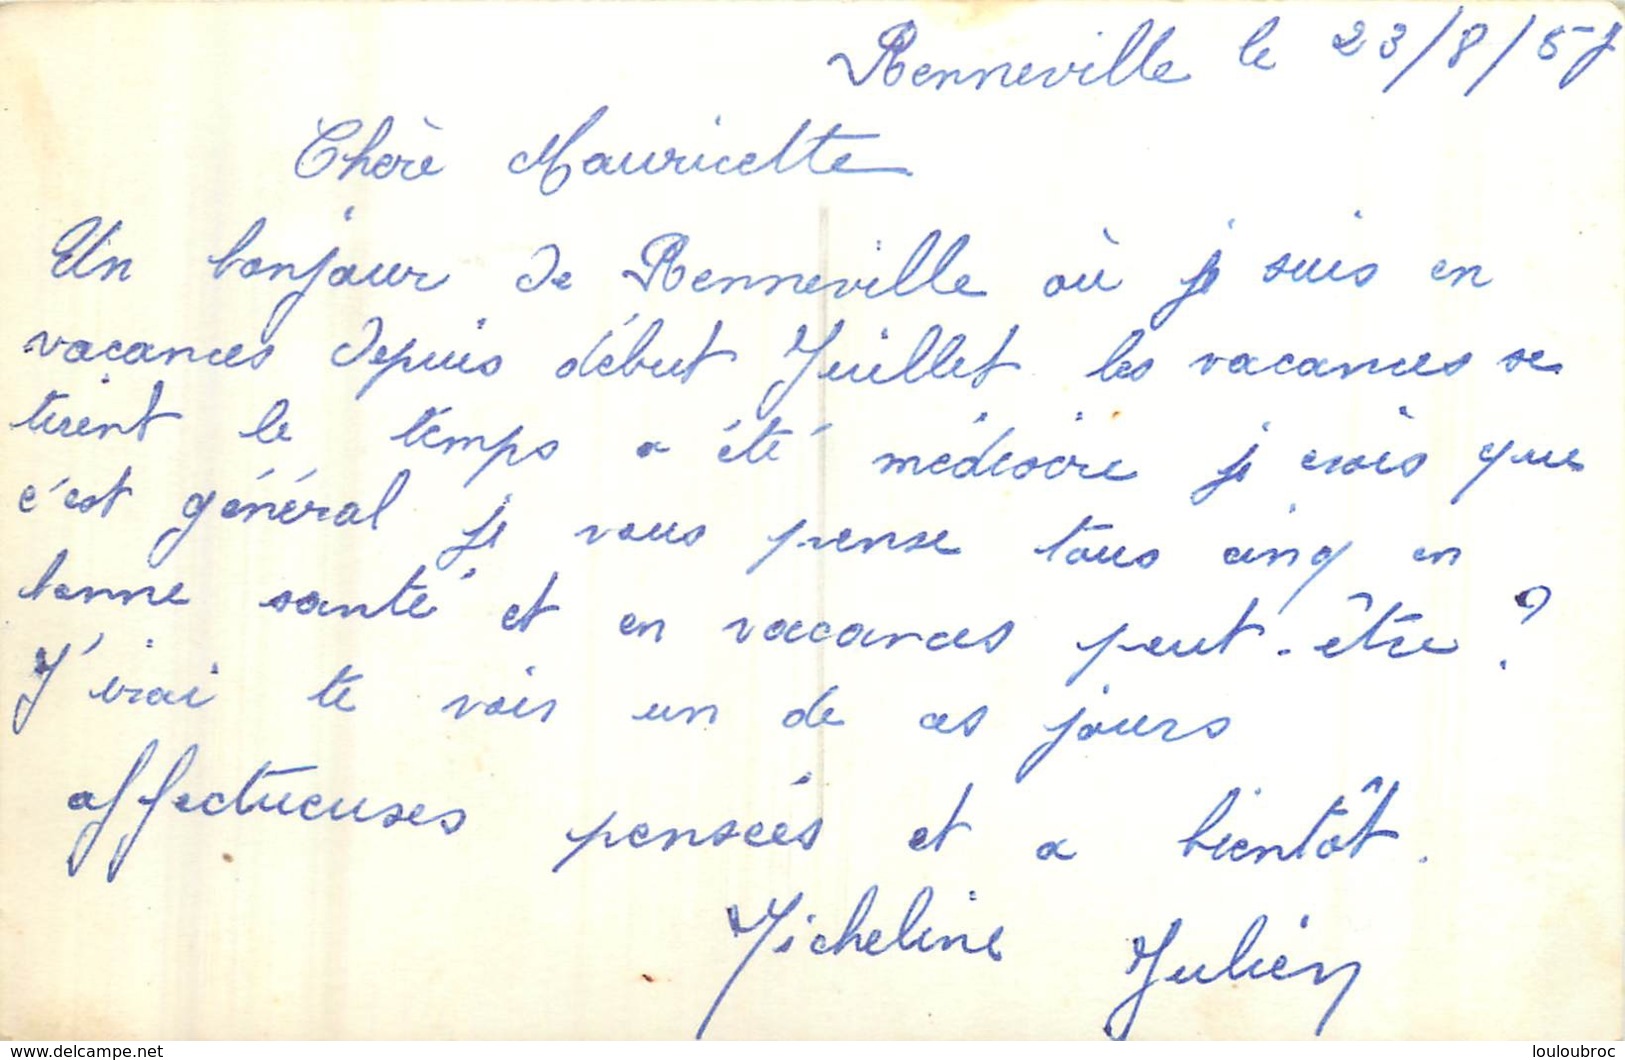 Renneville le 23/8/57
Chère Mauricette
Un bonjour de Renneville où je suis en
vacances depuis début Juillet les vacances se
tirent le temps a été médiocre je crois que
c'est général je vous pense tous cinq en
bonne santé et en vacances peut-être ?
J'irai te voir un de ces jours
affectueuses pensées et a bientôt.
Micheline Julien
www.delcampe.net
louloubroc